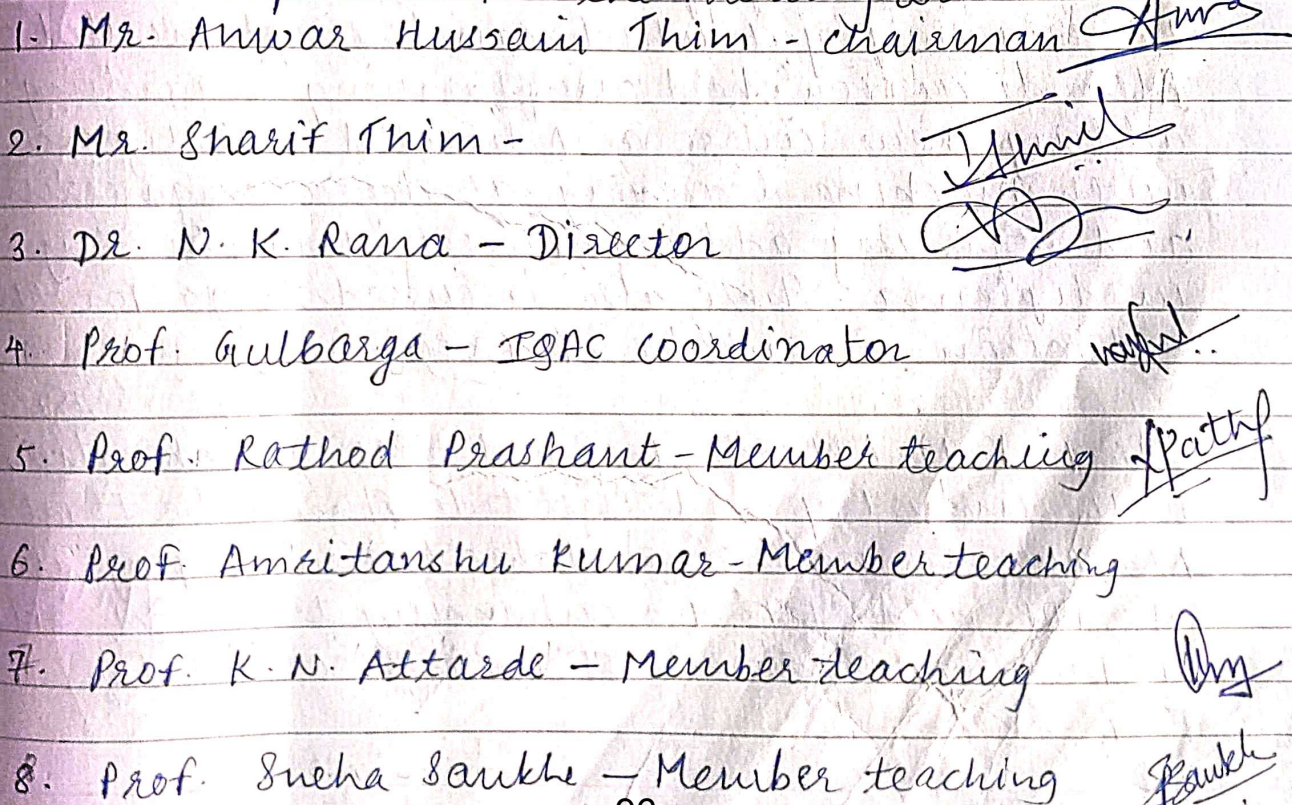 1. Mr. Anwar Hussain Thim - chairman
2. Mr. Sharif Thim -
3. Dr. N. K. Rana - Director
4. Prof. Gulbarga - IQAC coordinator
5. Prof. Rathod Prashant - Member teaching
6. Prof. Amritanshu Kumar - Member teaching
7. Prof. K. N. Attarde - Member teaching
8. Prof. Sneha Saukhe - Member teaching